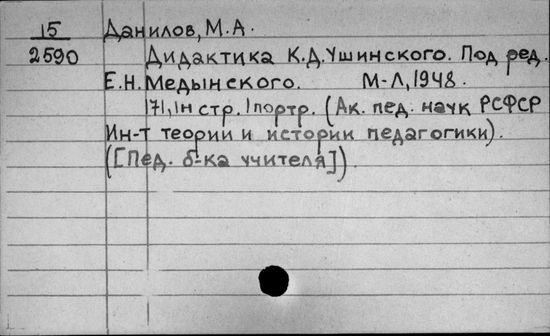 15 Данилов, М.А.
2590 Дидактика К.Д.Ушинского. Под ред.
Е.Н.Медынского. М-Л, 1948.
171, 1н стр. 1 портр. (Ак. пед. наук РСФСР
Ин-т теории и истории педагогики).
([Пед. б-ка учителя]).